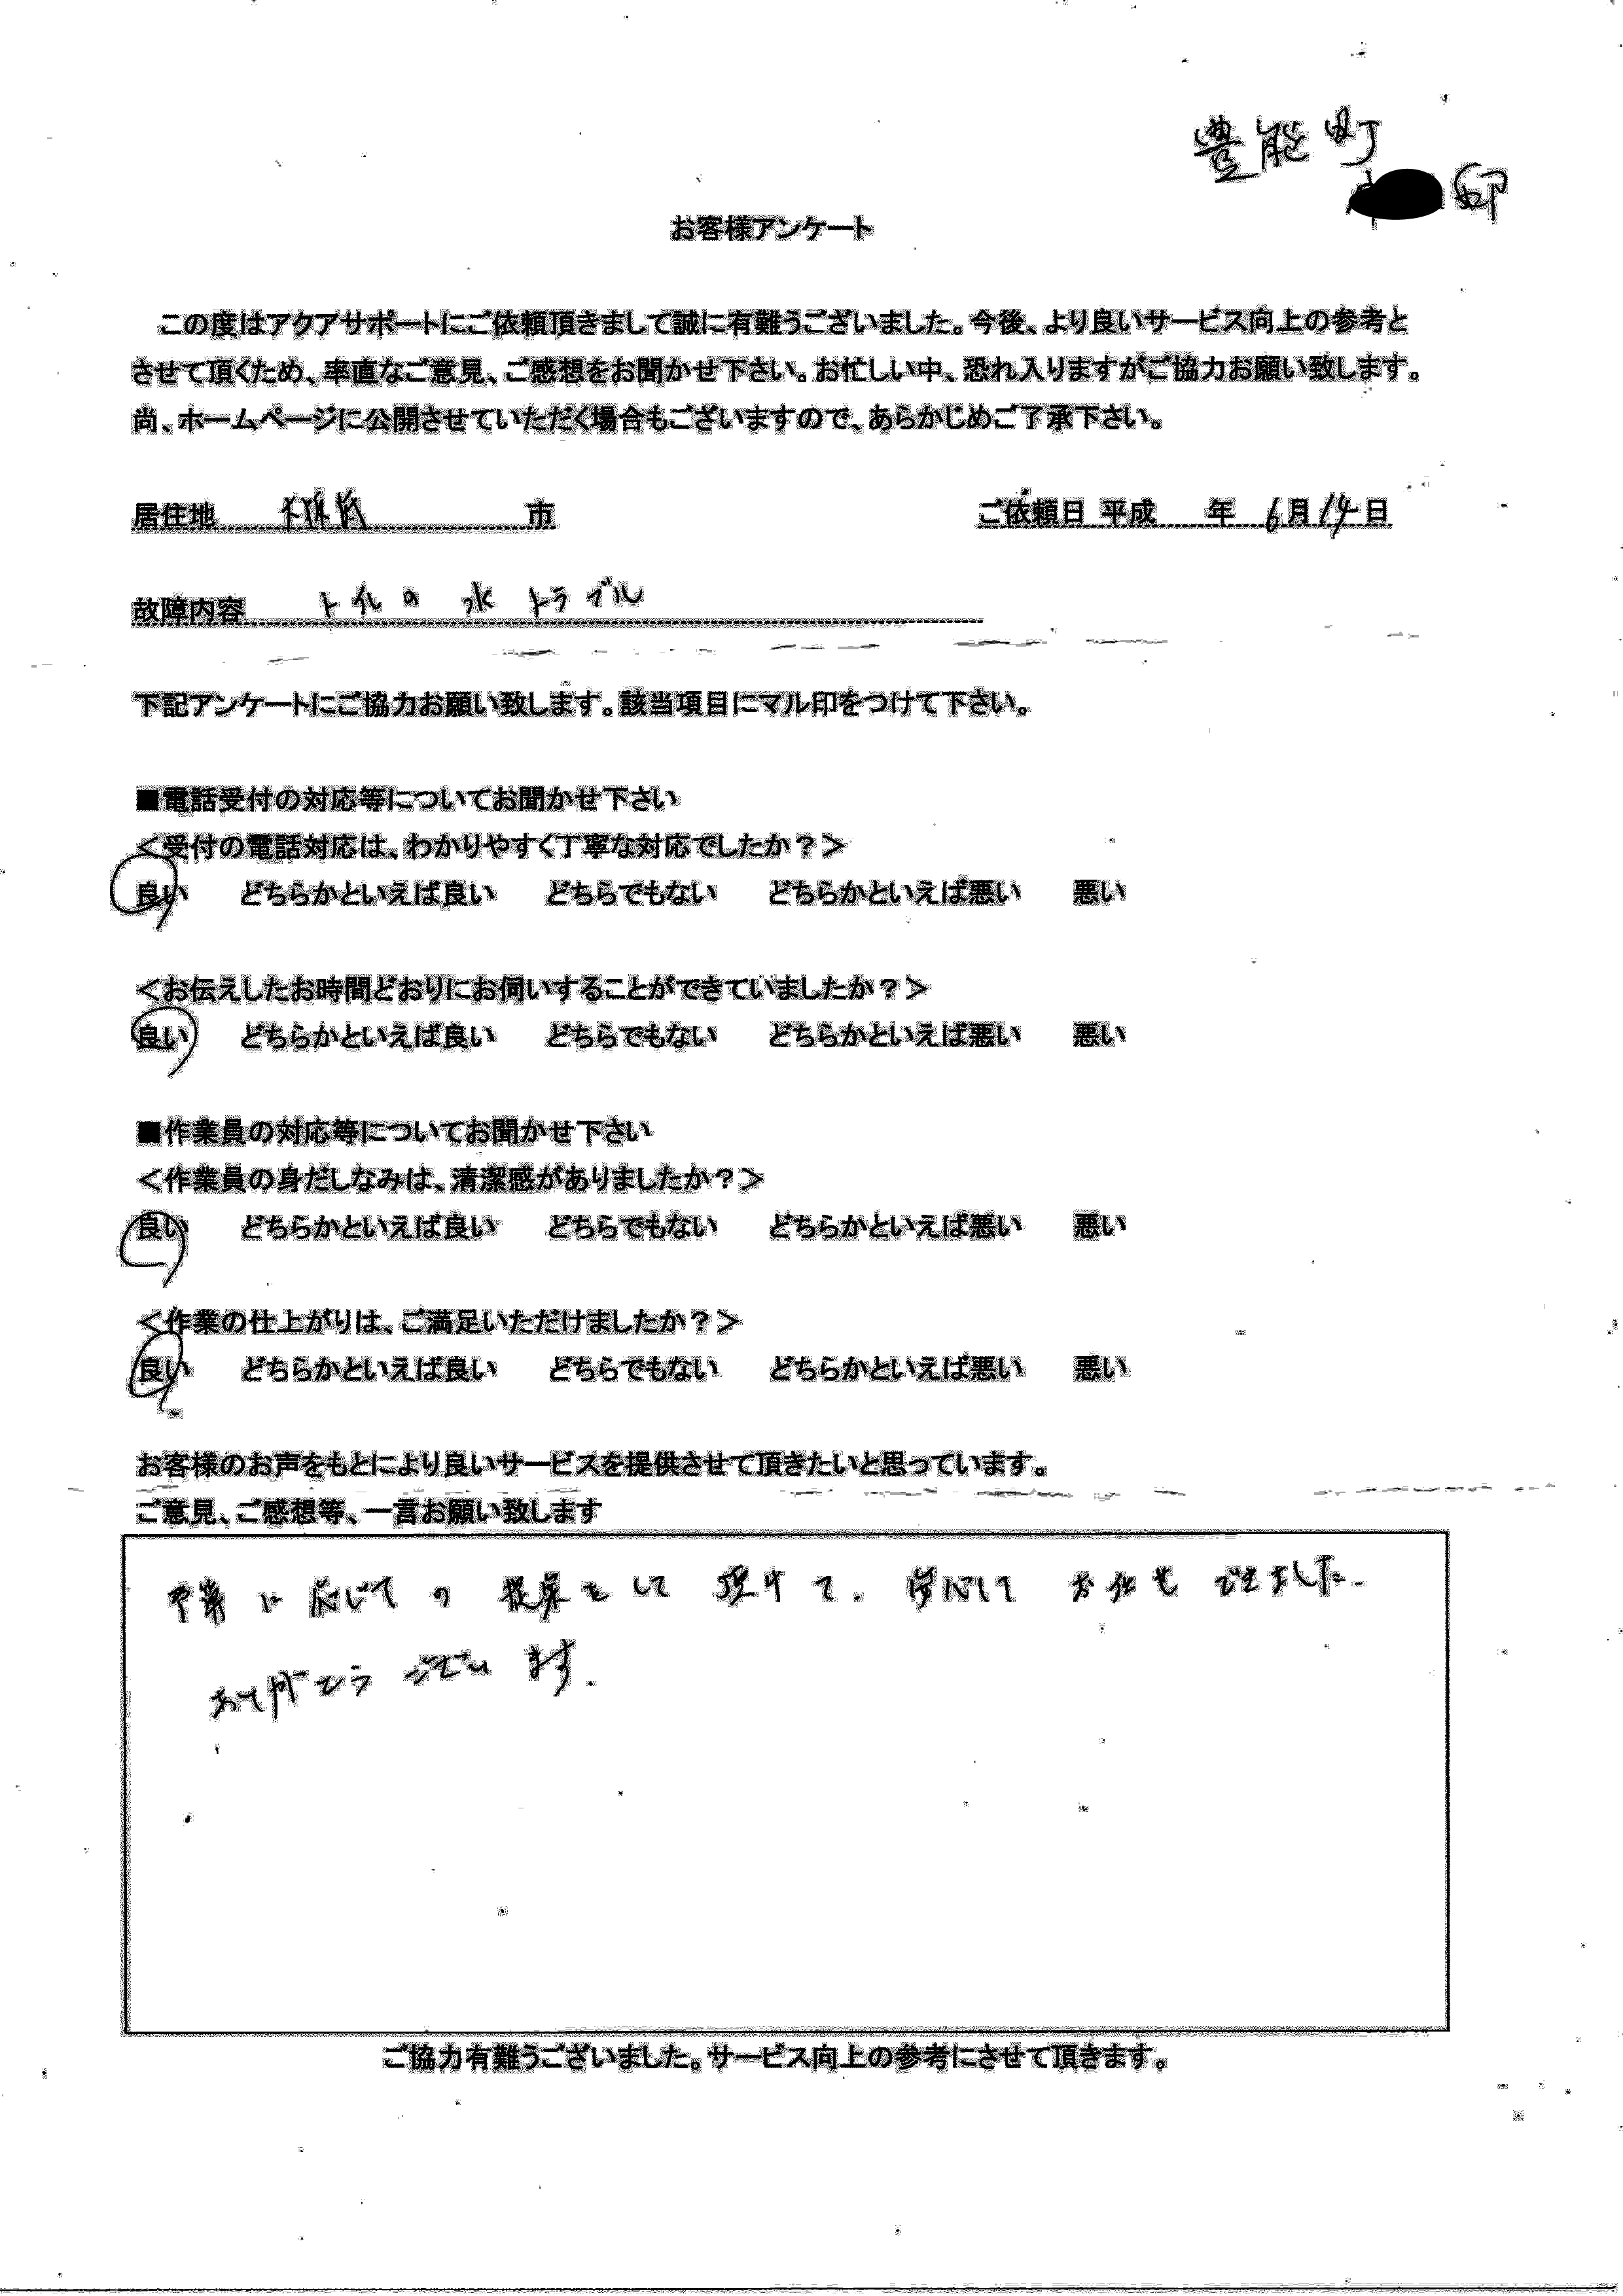 豊能町
邸
お客様アンケート
この度はアクアサポートにご依頼頂きまして誠に有難うございました。今後、より良いサービス向上の参考と
させて頂くため、率直なご意見、ご感想をお聞かせ下さい。お忙しい中、恐れ入りますがご協力お願い致します。
尚、ホームページに公開させていただく場合もございますので、あらかじめご了承下さい。
居住地 市
ご依頼日 平成 年 6月14日
故障内容 トイレの水トラブル
下記アンケートにご協力お願い致します。該当項目にマル印をつけて下さい。
■電話受付の対応等についてお聞かせ下さい
＜受付の電話対応は、わかりやすく丁寧な対応でしたか？＞
良い どちらかといえば良い どちらでもない どちらかといえば悪い 悪い
＜お伝えしたお時間どおりにお伺いすることができていましたか？＞
良い どちらかといえば良い どちらでもない どちらかといえば悪い 悪い
■作業員の対応等についてお聞かせ下さい
＜作業員の身だしなみは、清潔感がありましたか？＞
良い どちらかといえば良い どちらでもない どちらかといえば悪い 悪い
＜作業の仕上がりは、ご満足いただけましたか？＞
良い どちらかといえば良い どちらでもない どちらかといえば悪い 悪い
お客様のお声をもとにより良いサービスを提供させて頂きたいと思っています。
ご意見、ご感想等、一言お願い致します
予算に応じての提案をして頂けて。安心してお任せできました。
ありがとうございます.
ご協力有難うございました。サービス向上の参考にさせて頂きます。